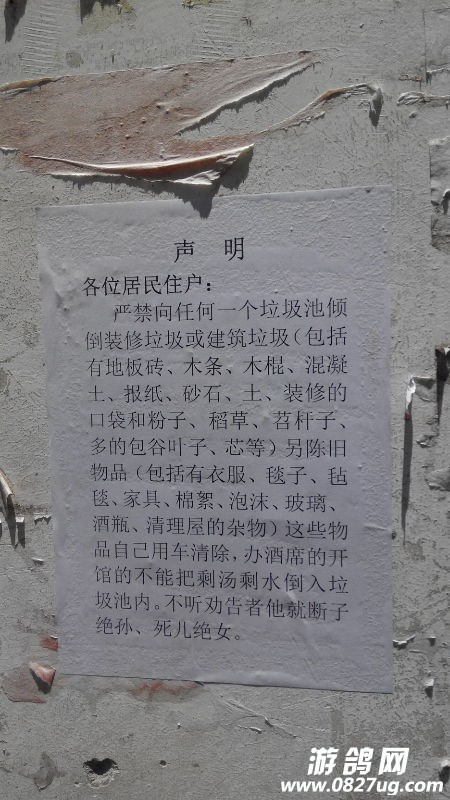 声 明
各位居民住户：
严禁向任何一个垃圾池倾
倒装修垃圾或建筑垃圾（包括
有地板砖、木条、木棍、混凝
土、报纸、砂石、土、装修的
口袋和粉子、稻草、苕杆子、
多的包谷叶子、芯等）另陈旧
物品（包括有衣服、毯子、毡
毯、家具、棉絮、泡沫、玻璃、
酒瓶、清理屋的杂物）这些物
品自己用车清除，办酒席的开
馆的不能把剩汤剩水倒入垃
圾池内。不听劝告者他就断子
绝孙、死儿绝女。
游鸽网
www.0827ug.com